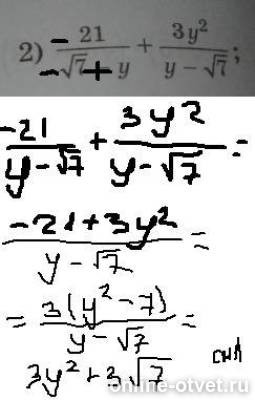 2) -21/(-√7 + y) + 3y²/(y - √7);
-21/(y-√7) + 3y²/(y-√7) =
(-21+3y²)/(y-√7) =
= 3(y²-7)/(y-√7) =
3y²+3√7
online-otvet.ru